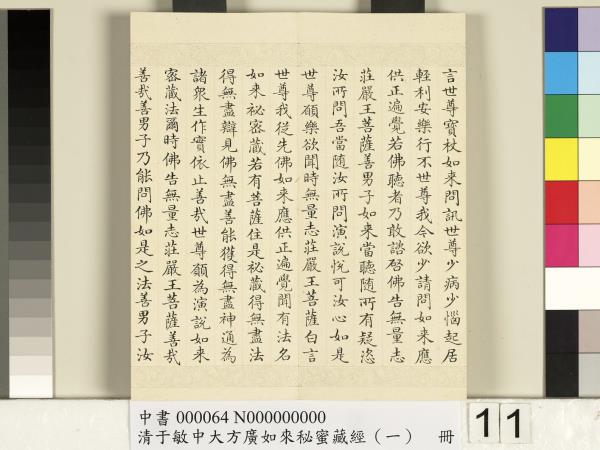 言世尊寶杖如來問訊世尊少病少惱起居
輕利安樂行不世尊我今欲少請問如來應
供正遍覺若佛聽者乃敢諮啓佛告無量志
莊嚴王菩薩善男子如來當聽隨所有疑恣
汝所問吾當隨汝所問演說悅可汝心如是
世尊願樂欲聞時無量志莊嚴王菩薩白言
世尊我從先佛如來應供正遍覺聞有法名
如來祕密藏若有菩薩住是祕藏得無盡法
得無盡辯見佛無盡善能獲得無盡神通為
諸衆生作實依止善哉世尊願為演說如來
密藏法爾時佛告無量志莊嚴王菩薩善哉
善哉善男子乃能問佛如是之法善男子汝
中書 000064 N000000000
清于敏中大方廣如來秘蜜藏經（一） 冊
11